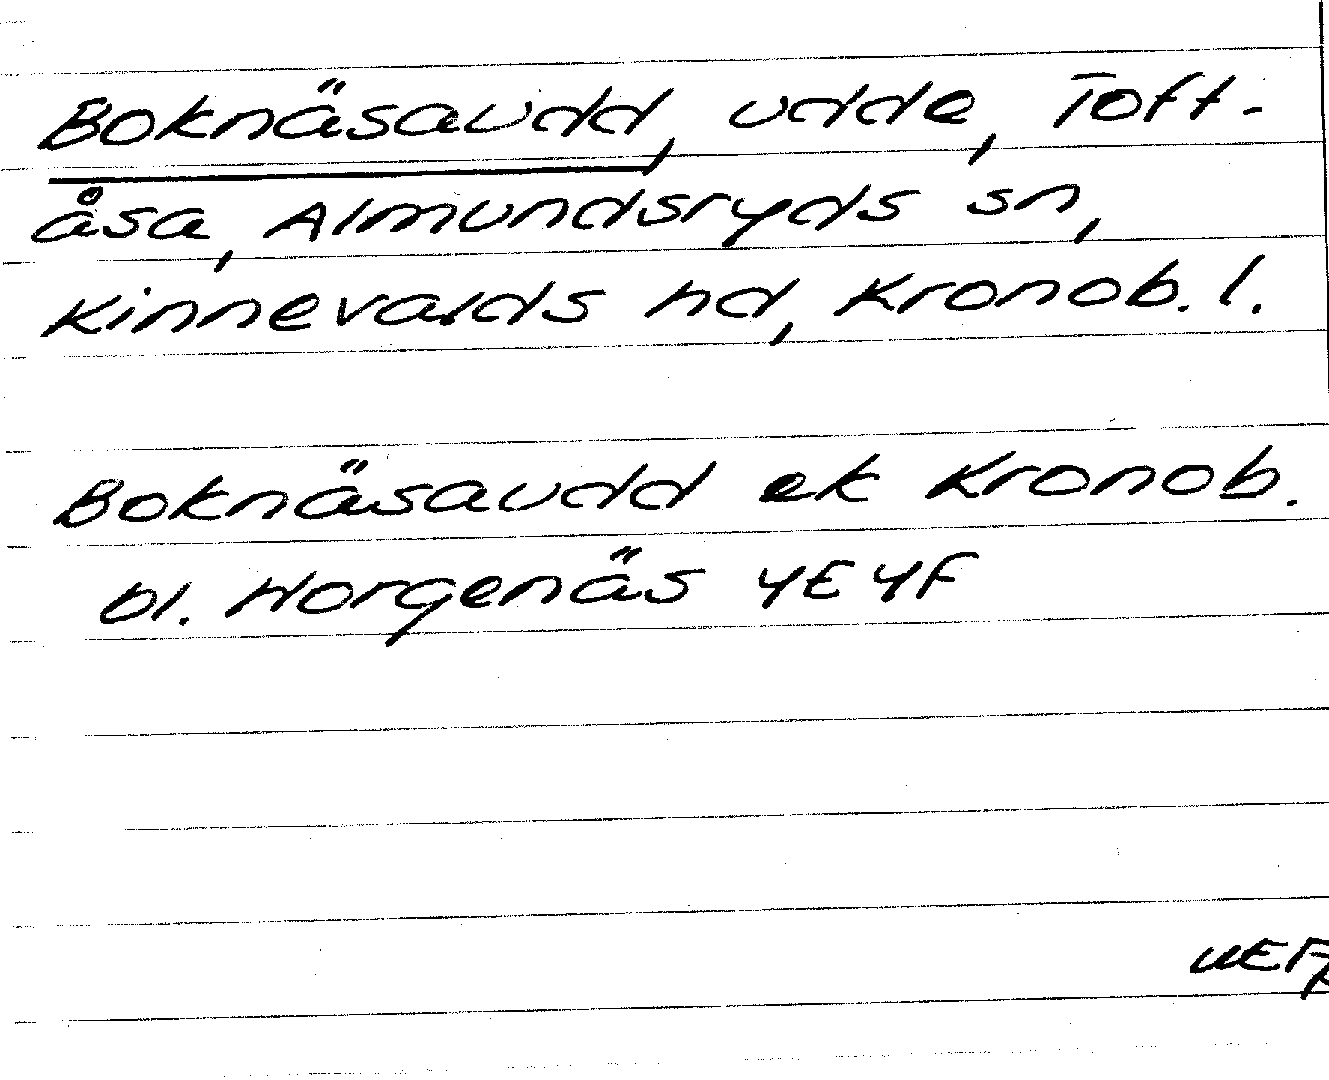 Boknäsaudd, udde, Toft-
åsa, Almundsryds sn,
Kinnevalds hd, Kronob. l.
Boknäsaudd ek Kronob.
bl. Horgenäs 4E4F